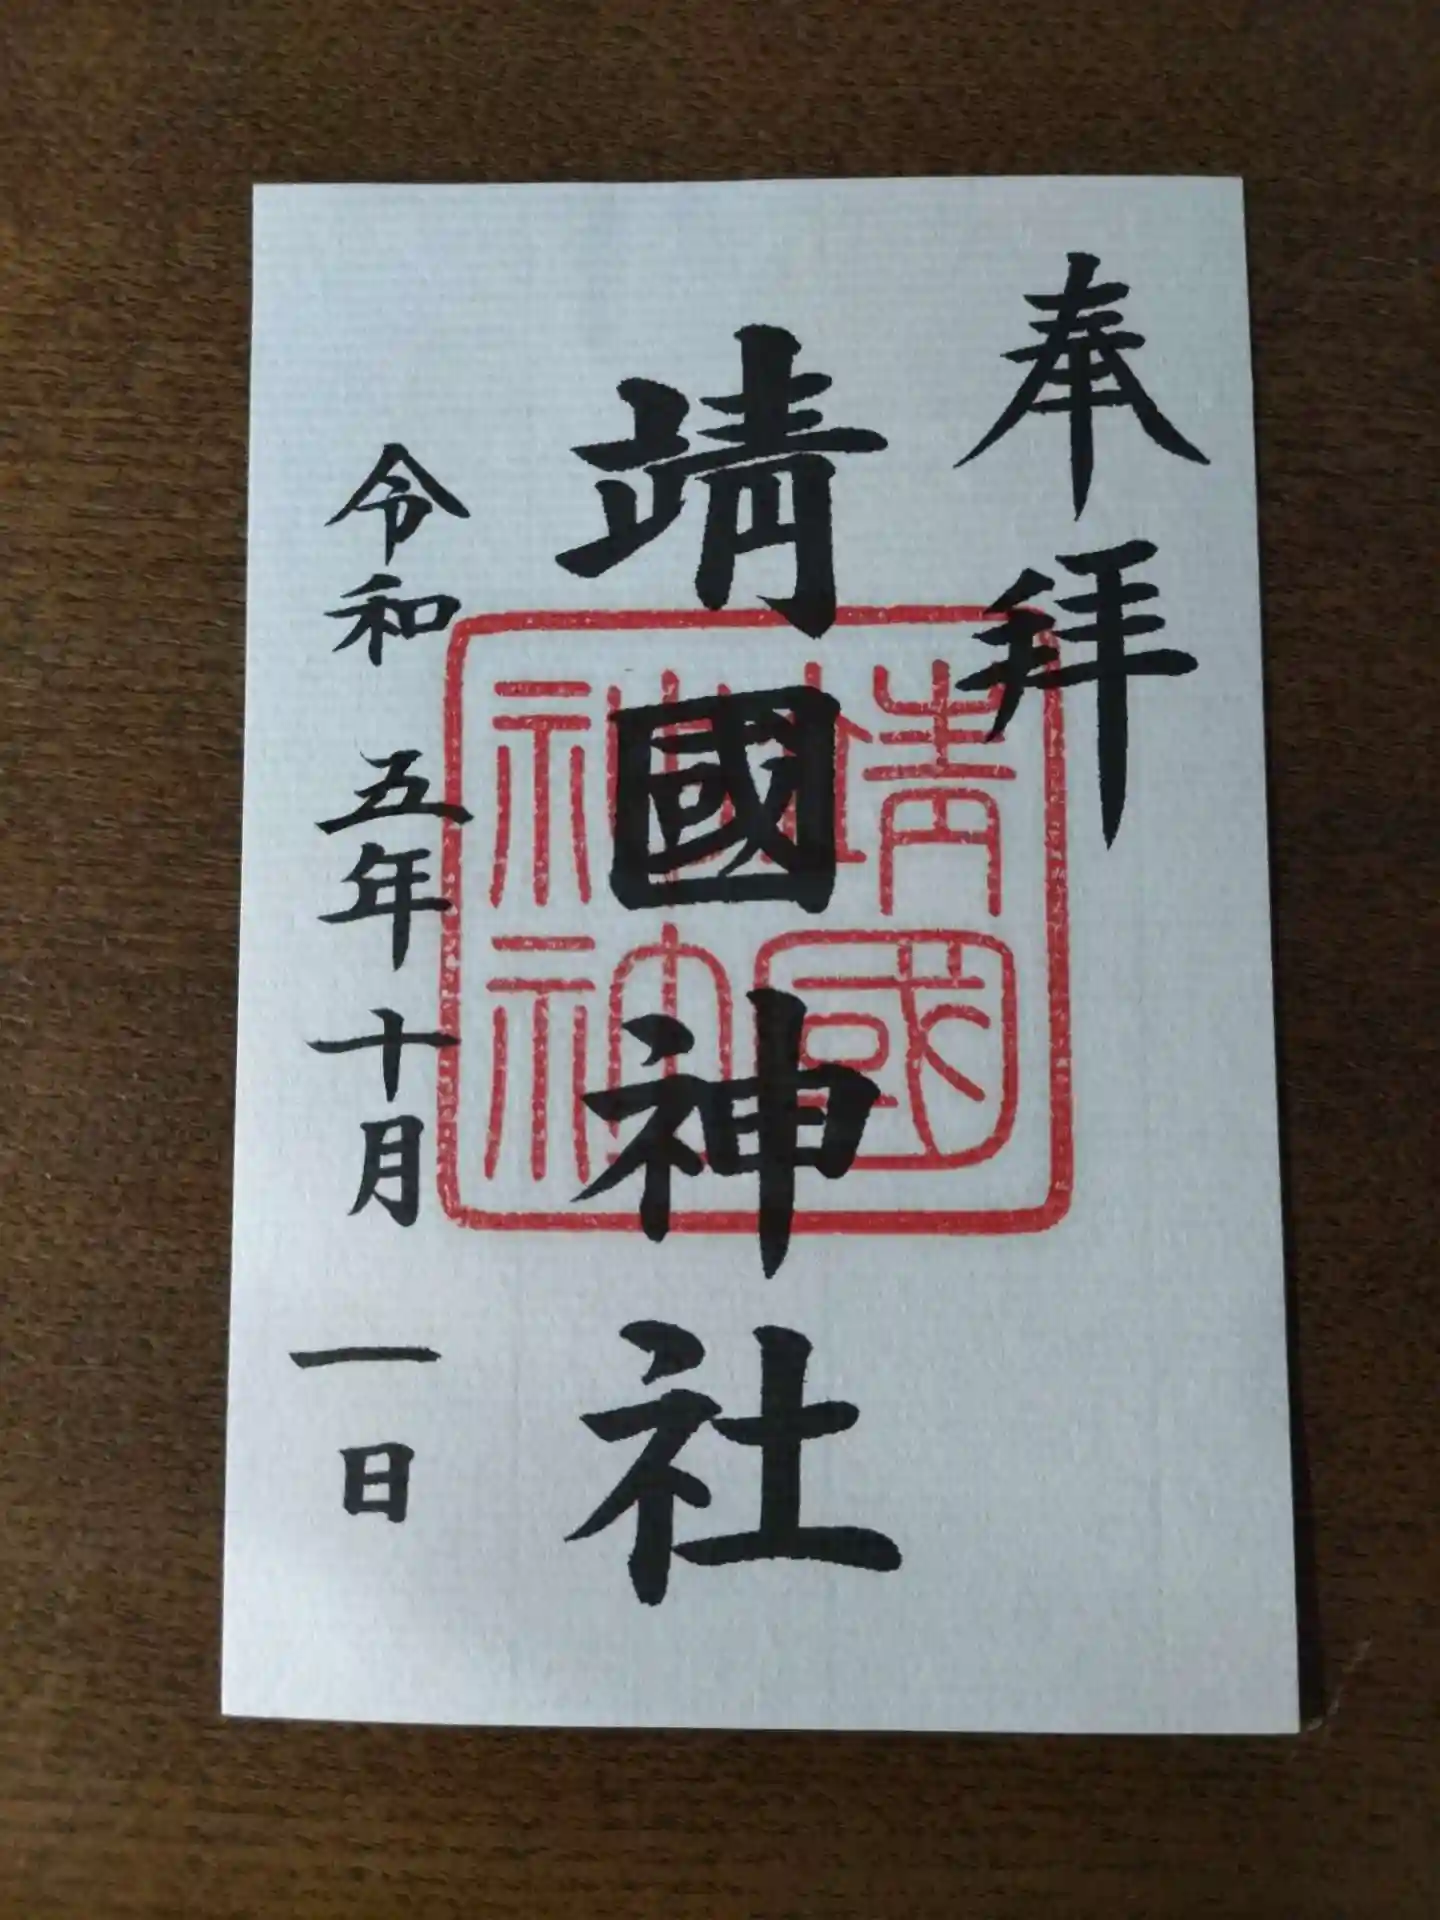 奉拝
靖國神社
令和五年十月一日
靖國
神社